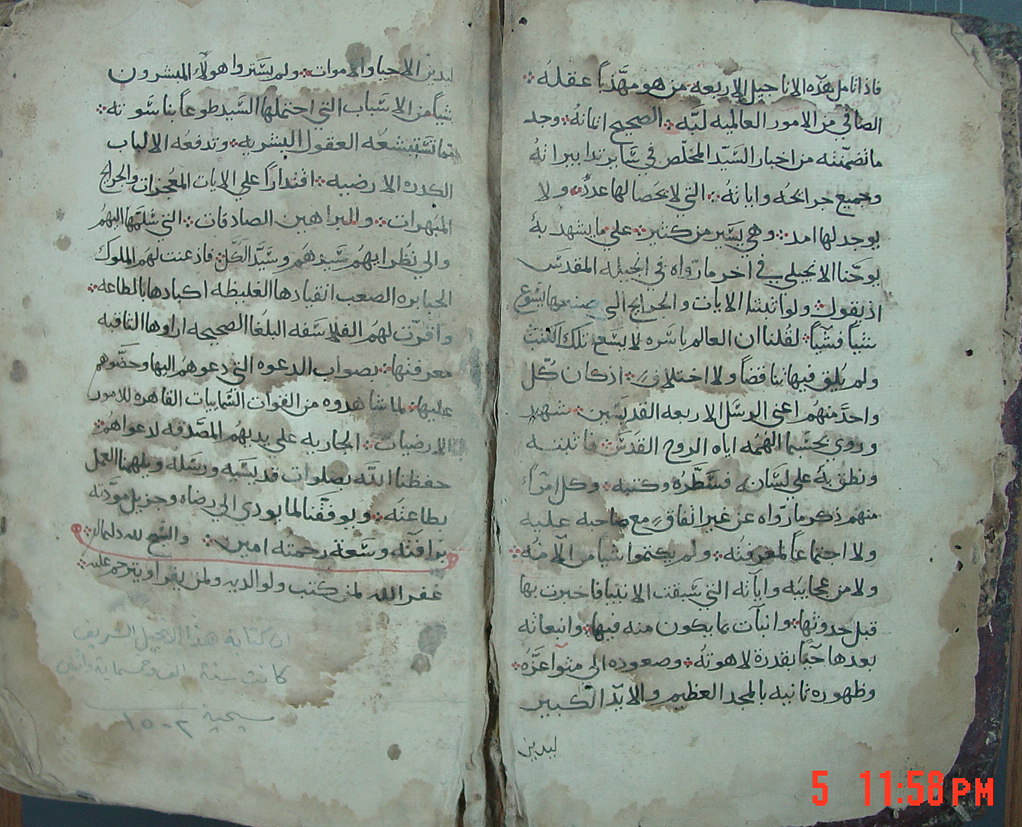 فاذا تامل هذه الاناجيل الاربعه من هو مهذباً عقله
الصافي من الامور العالميه لبه الصحيح ايمانه وجد
ما تضمنته من اخبار السيد المخلص في ساير تدابيراته
وجميع جرائحه واياته التي لا يحصا لها عدد ولا
يوجد لها امد وهي يسير من كثير علي ما يشهد به
يوحنا الانجيلي في اخر ما رواه في انجيله المقدس
اذ يقول ولو اثبتنا الايات والجرايح التي صنعها يسوع
شياً فشياً لقلنا ان العالم باسره لا يسع تلك الكتب
ولم يلق فيها تناقضاً ولا اختلاف اذ كان كل
واحد منهم اعني الرسل الاربعه القديسين شهد
وروي بحسبما الهمه اياه الروح القدس فاثبته
ونطق به علي لسانه فسطره وكتبه وكل امرآء
منهم ذكر ما رواه عن غير اتفاق مع صاحبه عليه
ولا اجتماعاً لمعرفته ولم يكتموا شيا من آلامه
ولا من عجايبه واياته التي سبقت الانبيا فاخبرت بها
قبل حدوثها وانبآت بما يكون منه فيها وانبعاثه
بعدها حياً بقدرة لاهوته وصعوده الي مثوا عزه
وظهوره ثانيه بالمجد العظيم والايد الكبير
ليدين
ليدين الاحيا والاموات ولم يستروا هولاء المبشرون
شياً من الاسباب التي احتملها السيد طوعاً بناسوته
مما تستبشعه العقول البشريه وتدفعه الالباب
الكدره الارضيه اقتداراً علي الايات المعجزات والجرايح
المبهرات والبراهين الصادقات التي سلمها اليهم
والي نظرايهم سيدهم وسيد الكل فاذعنت لهم الملوك
الجبابره الصعب انقيادها الغليظه اكبادها بالطاعه
واقرت لهم الفلاسفه البلغا الصحيحه اراوها الثاقبه
معرفتها بصواب الدعوه التي دعوهم اليها وحضوهم
عليها لما شاهدوه من القوات السمايات القاهره للامور
الارضيات الجاريه علي يديهم المصدقه لدعواهم
حفظنا الله بصلوات قديسيه ورسله ويلهمنا العمل
بطاعته ويوفقنا لما يودي الي رضاه وجزيل مودته
برافته وسعة رحمته امين والسبح لله دايماً
غفر الله لمن كتب ولوالديه ولمن يقرا ويترحم عليه
ان كتابة هذا الانجيل الشريف
كانت سنة الف وخمسمائة واثنين
مسيحية ١٥٠٢
5 11:58 PM